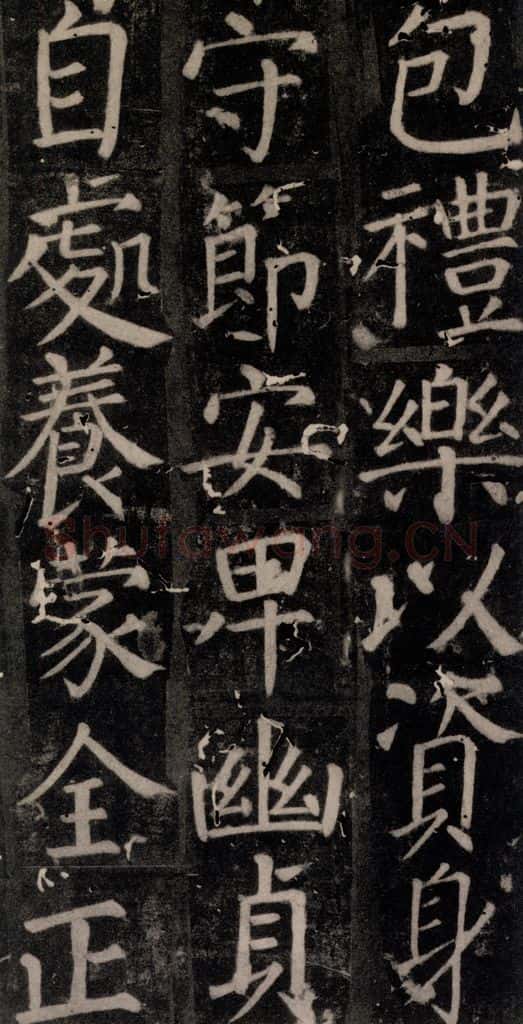 包禮樂以資身
守節安卑幽貞
自處養蒙全正
Shufawang.CN